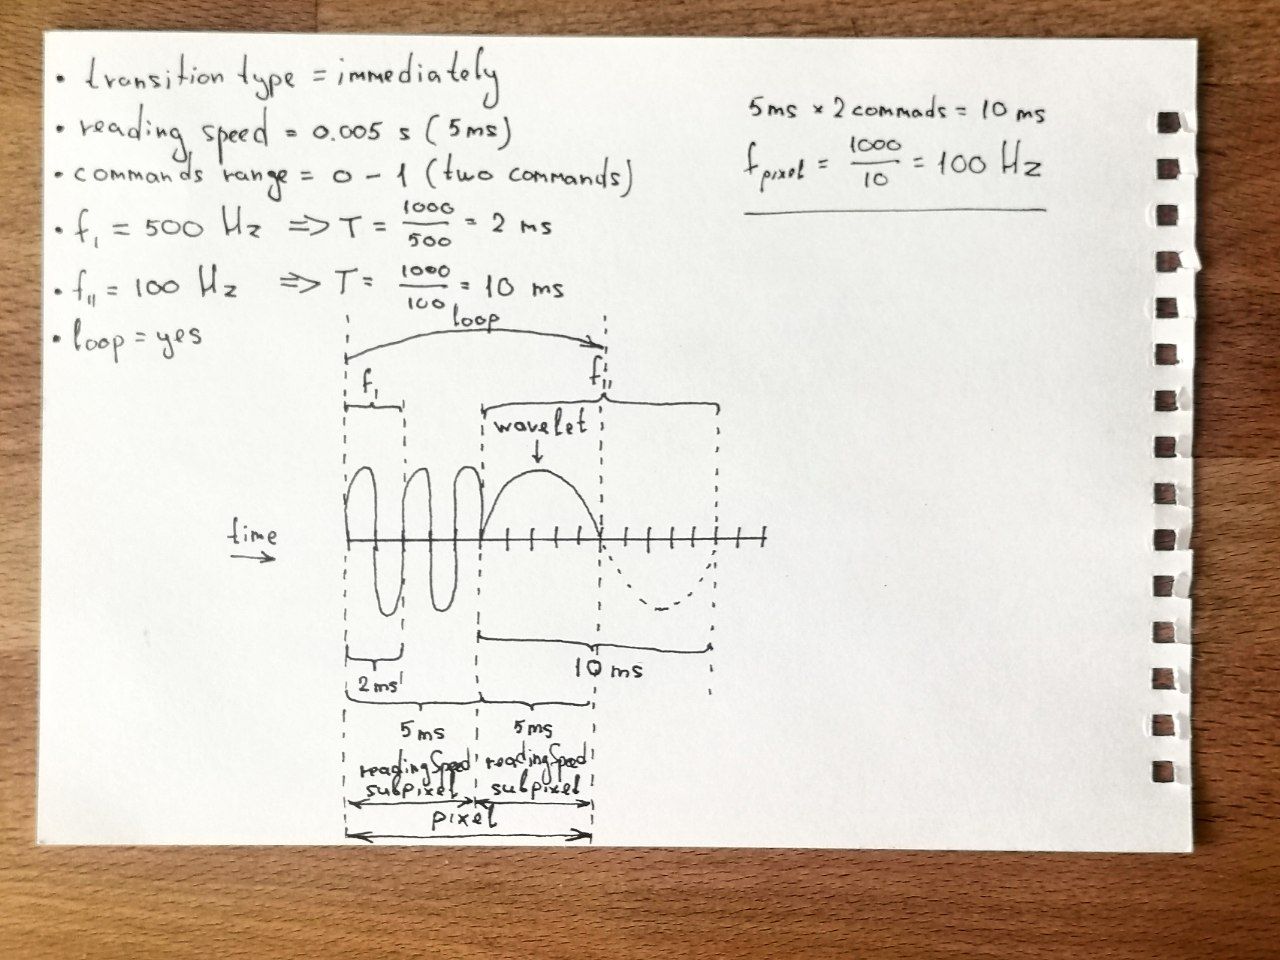 • transition type = immediately
• reading speed = 0.005 s (5ms)
• commands range = 0 - 1 (two commands)
• f₁ = 500 Hz => T = 1000/500 = 2 ms
• f₁₁ = 100 Hz => T = 1000/100 = 10 ms
• loop = yes
5ms × 2 commads = 10 ms
f pixel = 1000/10 = 100 Hz
loop
f₁
f₁₁
wavelet
time
10 ms
2ms
5ms
5ms
readingSpeed
readingSpeed
subpixel
subpixel
pixel